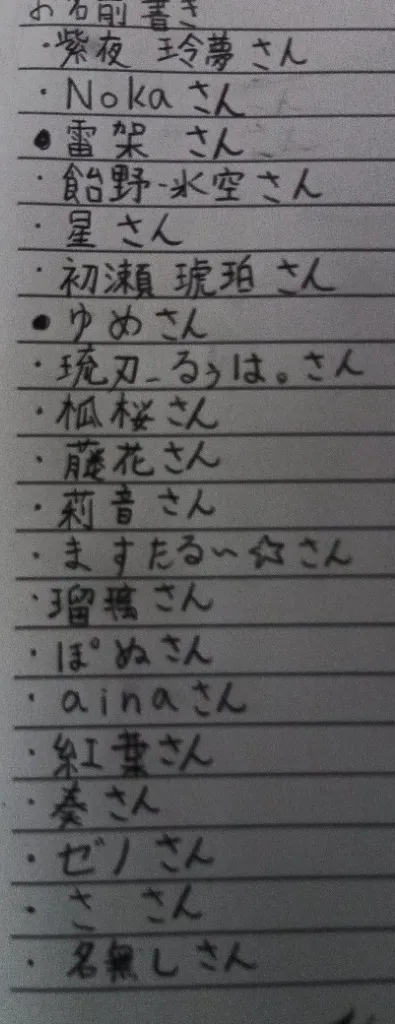 お名前書き
・紫夜 玲夢さん
・Nokaさん
●雷架 さん
・飴野-氷空さん
・星さん
・初瀬 琥珀さん
●ゆめさん
・琉刃_るぅは。さん
・柧桜さん
・藤花さん
・莉音さん
・ますたる～☆さん
・瑠璃さん
・ぽぬさん
・ainaさん
・紅葉さん
・奏さん
・ゼノさん
・さ さん
・名無しさん